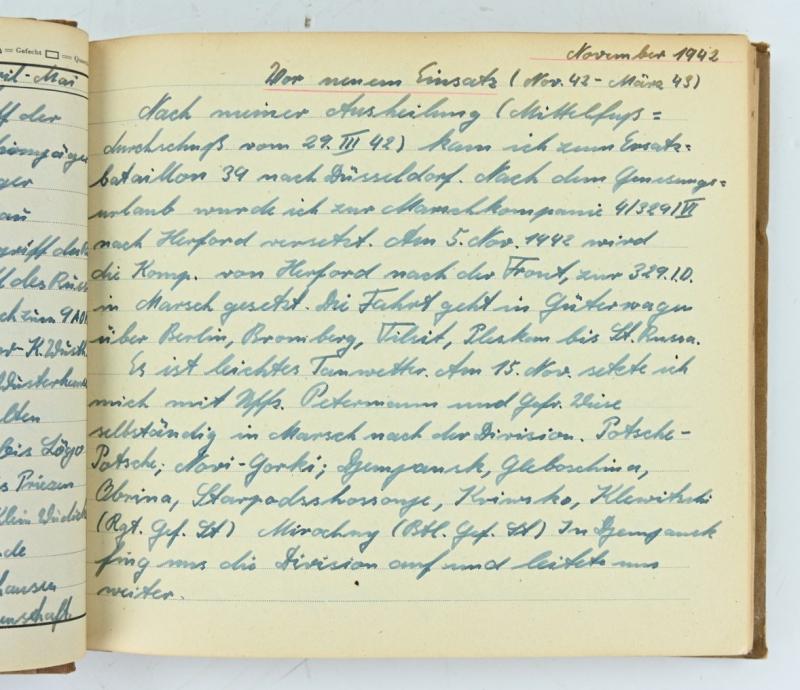 = Gefecht
ril-Mai
ff der
ger
au
griff
ff des Russ
ch zum
Wusterhau
lten
bis
s Priezen
Klein
de
hausen
nschaft.
November 1942
Vor neuem Einsatz (Nov. 42 - März 43)
Nach meiner Ausheilung (Mittelfuß=
durchschuß vom 29. III 42) kam ich zum Ersatz=
bataillon 39 nach Düsseldorf. Nach dem Genesungs=
urlaub wurde ich zur Marschkompanie 4/329/VI
nach Herford versetzt. Am 5. Nov. 1942 wird
die Komp. von Herford nach der Front, zur 329. I.D.
in Marsch gesetzt. Die Fahrt geht in Güterwagen
über Berlin, Bromberg, Tilsit, Pleskau bis St. Russa.
Es ist leichtes Tauwetter. Am 15. Nov. setzte ich
mich mit Uffz. Petermann und Gefr. Wiese
selbständig in Marsch nach der Division. Potsche-
Potsche; Novi-Gorki; Djemjansk, Gleboschina,
Obrina, Kriwsko, Klewitschi
(Rgt. Gef. St) Mirochny (Btl. Gef. St) In Djemjansk
fing uns die Division auf und leitete uns
weiter.